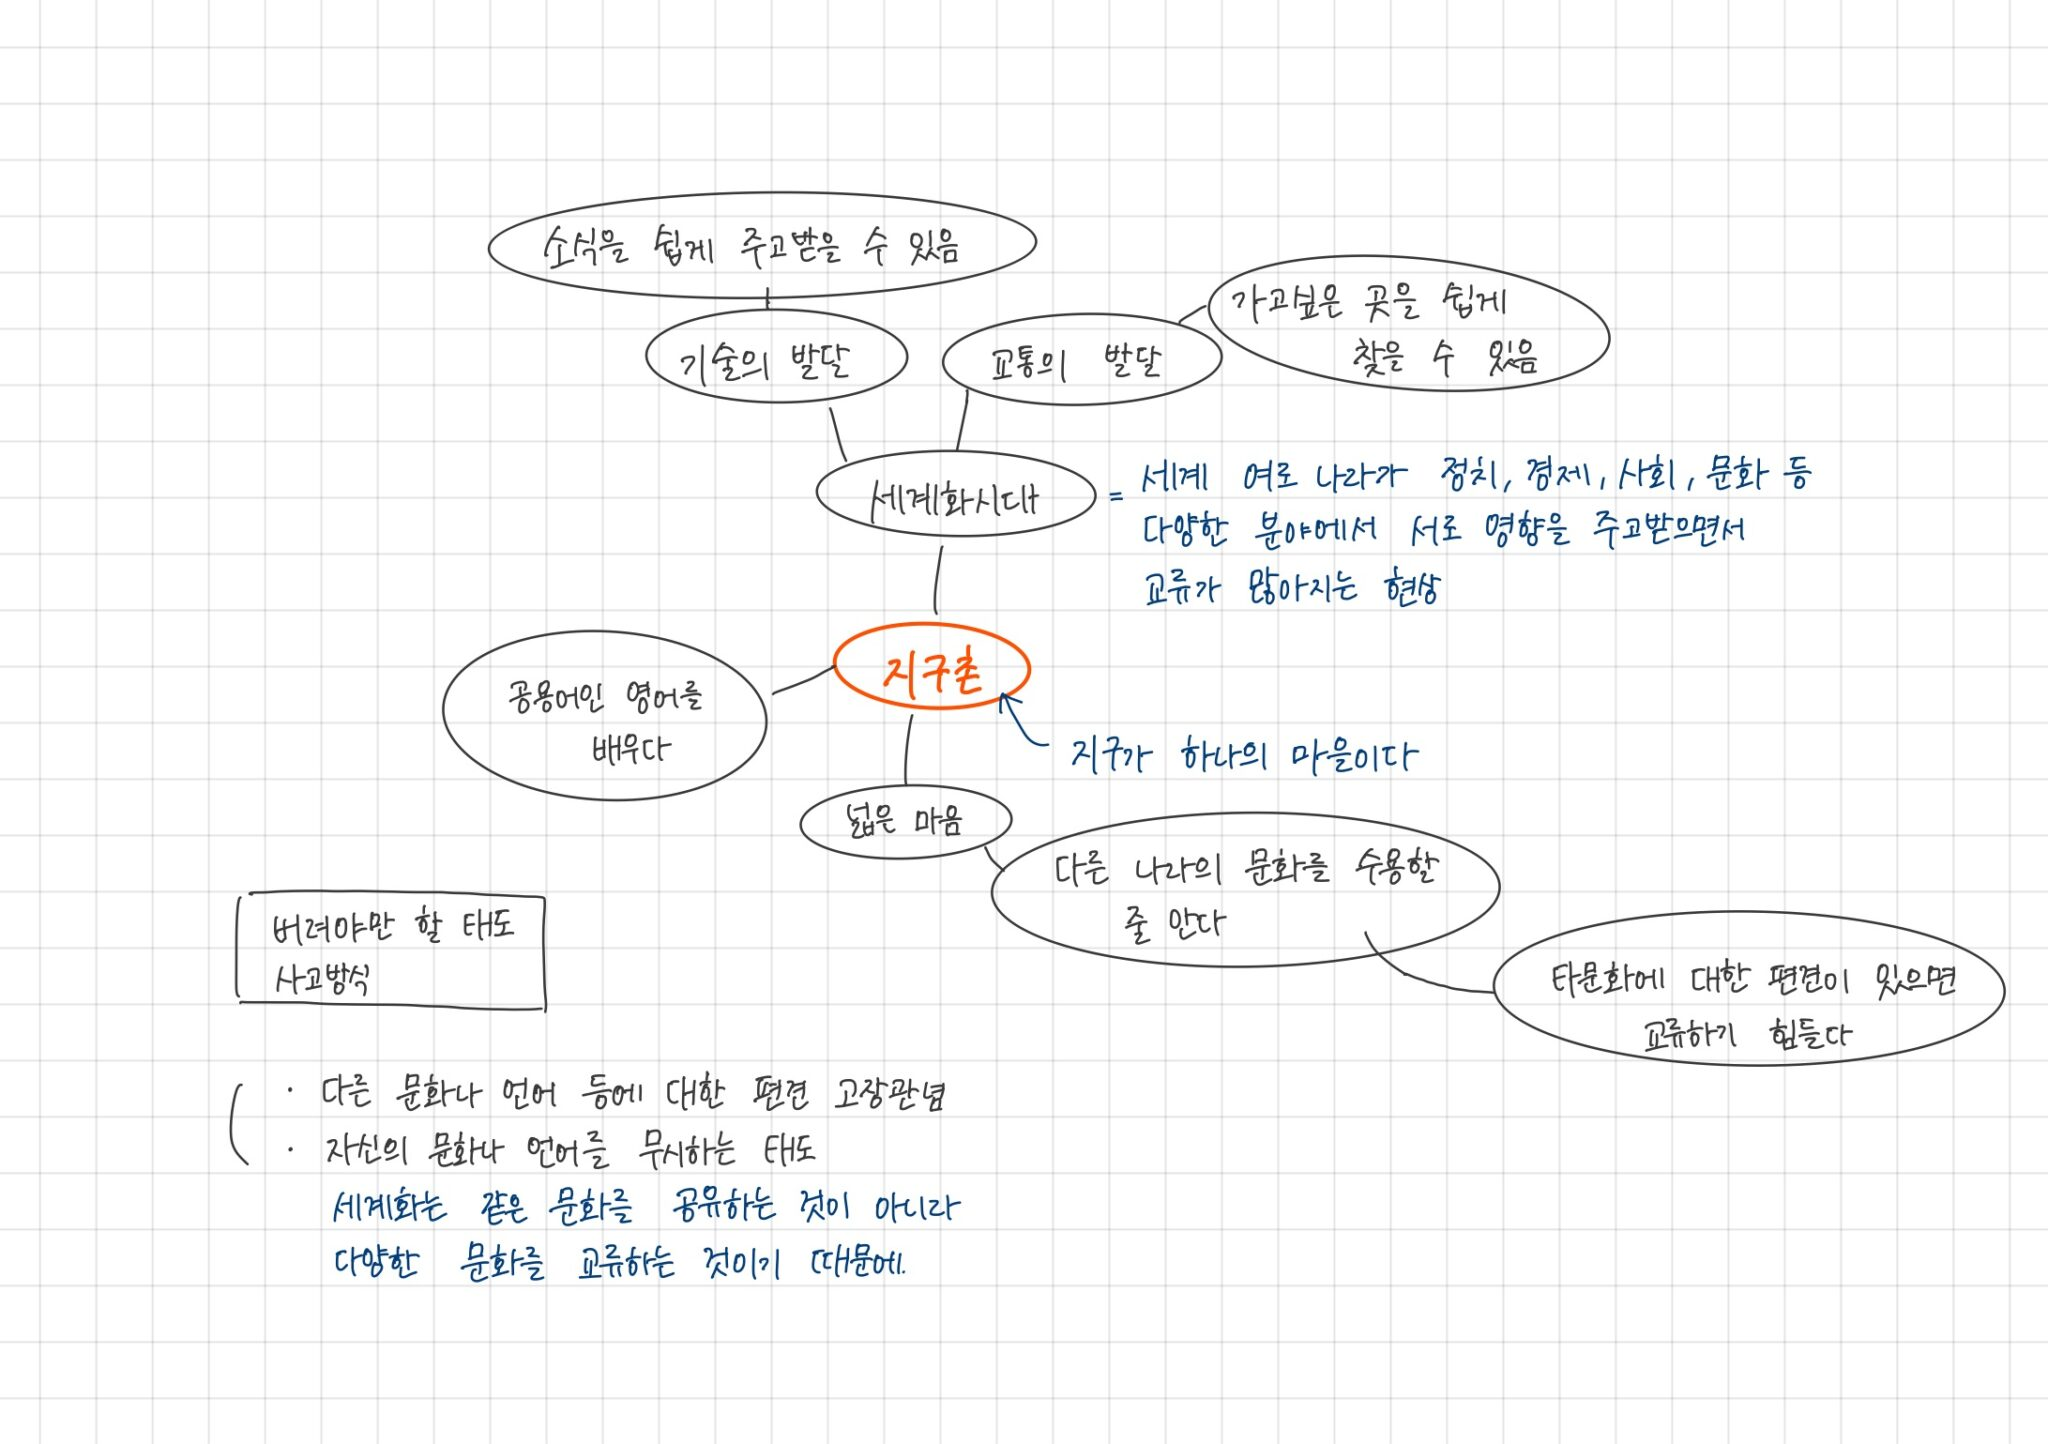 소식을 쉽게 주고받을 수 있음
기술의 발달
교통의 발달
가고싶은 곳을 쉽게
찾을 수 있음
세계화시대
= 세계 여로 나라가 정치, 경제, 사회, 문화 등
다양한 분야에서 서로 영향을 주고받으면서
교류가 많아지는 현상
지구촌
공용어인 영어를
배우다
지구가 하나의 마을이다
넓은 마음
다른 나라의 문화를 수용할
줄 안다
버려야만 할 태도
사고방식
타문화에 대한 편견이 있으면
교류하기 힘들다
· 다른 문화나 언어 등에 대한 편견 고장관념
· 자신의 문화나 언어를 무시하는 태도
세계화는 같은 문화를 공유하는 것이 아니라
다양한 문화를 교류하는 것이기 때문에.